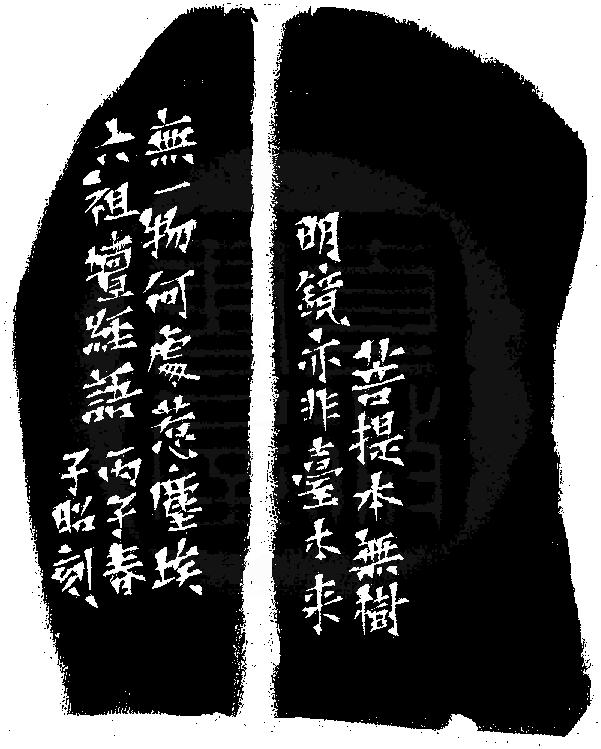 菩提本無樹
明鏡亦非臺本来
無一物何處惹塵埃
六祖壇經語
丙子春
子昭刻